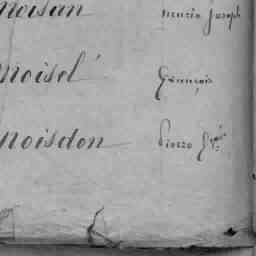 Noisan marie Joseph
Noisel François
Noisdon Pierre